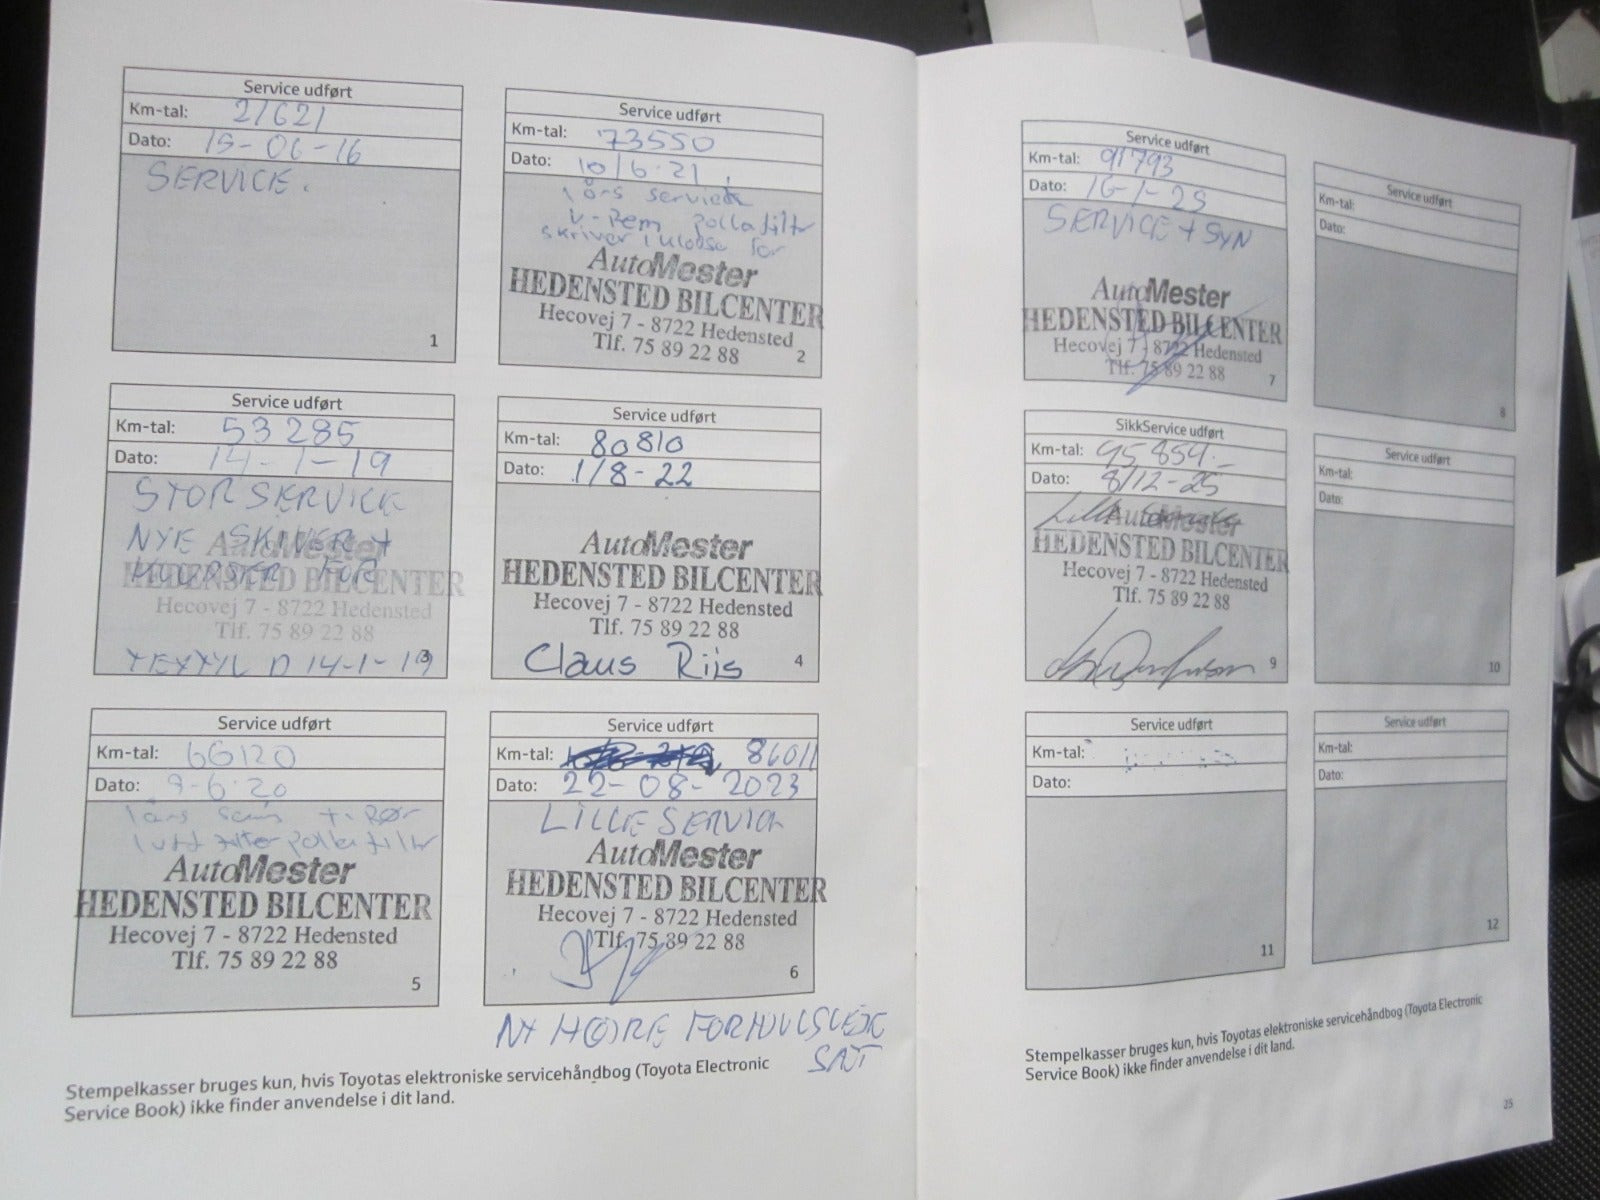 Service udført
Km-tal: 21621
Dato: 15-06-16
SERVICE.
1
Service udført
Km-tal: 73550
Dato: 10/6-21
1 års service
V-Rem pollafiltr
skriver i klodse for
AutoMester
HEDENSTED BILCENTER
Hecovej 7 - 8722 Hedensted
Tlf. 75 89 22 88
2
Service udført
Km-tal: 53285
Dato: 14-1-19
STOR SERVICE
NYE SKIVER +
FOR
AutoMester
HEDENSTED BILCENTER
Hecovej 7 - 8722 Hedensted
Tlf. 75 89 22 88
D 14-1-19
3
Service udført
Km-tal: 80810
Dato: 1/8-22
AutoMester
HEDENSTED BILCENTER
Hecovej 7 - 8722 Hedensted
Tlf. 75 89 22 88
Claus Riis
4
Service udført
Km-tal: 66120
Dato: 9-6-20
1 års
luft filter pollafiltr
AutoMester
HEDENSTED BILCENTER
Hecovej 7 - 8722 Hedensted
Tlf. 75 89 22 88
5
Service udført
Km-tal: 86011
Dato: 22-08-2023
LILLE SERVICE
AutoMester
HEDENSTED BILCENTER
Hecovej 7 - 8722 Hedensted
Tlf. 75 89 22 88
6
NY HØJRE
Stempelkasser bruges kun, hvis Toyotas elektroniske servicehåndbog (Toyota Electronic
Service Book) ikke finder anvendelse i dit land.
Service udført
Km-tal: 91793
Dato: 16-1-25
SERVICE + SYN
AutoMester
HEDENSTED BILCENTER
Hecovej 7 - 8722 Hedensted
Tlf. 75 89 22 88
7
Service udført
Km-tal:
Dato:
8
SikkService udført
Km-tal: 95859.-
Dato: 8/12-25
AutoMester
HEDENSTED BILCENTER
Hecovej 7 - 8722 Hedensted
Tlf. 75 89 22 88
9
Service udført
Km-tal:
Dato:
10
Service udført
Km-tal:
Dato:
11
Service udført
Km-tal:
Dato:
12
Stempelkasser bruges kun, hvis Toyotas elektroniske servicehåndbog (Toyota Electronic
Service Book) ikke finder anvendelse i dit land.
35